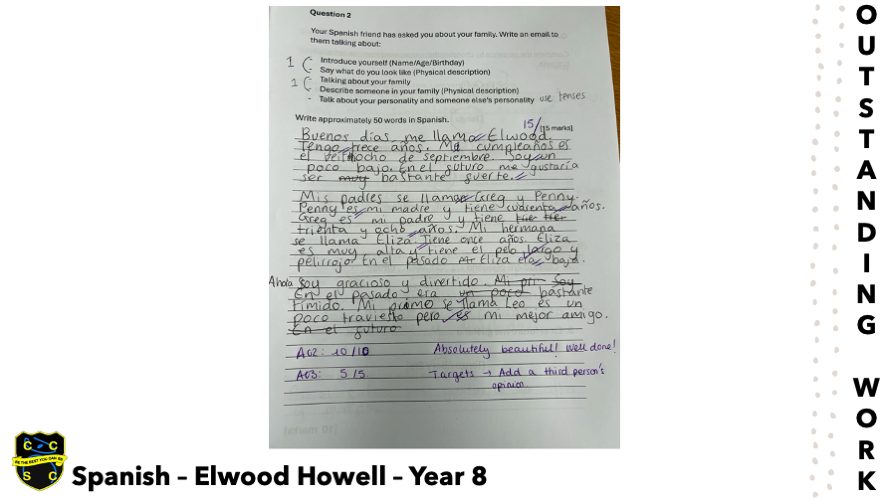 Question 2
Your Spanish friend has asked you about your family. Write an email to
them talking about:
1
- Introduce yourself (Name/Age/Birthday)
- Say what do you look like (Physical description)
1
- Talking about your family
- Describe someone in your family (Physical description)
- Talk about your personality and someone else's personality use tenses
Write approximately 50 words in Spanish.
15/[15 marks]
Buenos días, me llamo Elwood.
Tengo trece años. Mi cumpleaños es
el de septiembre. Soy un
poco bajo. En el futuro me gustaría
ser muy bastante fuerte.
Mis padres se llaman Greg y Penny.
Penny es mi madre y tiene cuarenta años.
Greg es mi padre y tiene
trienta y ocho años. Mi hermana
se llama Eliza. Tiene once años. Eliza
es muy alta y tiene el pelo largo y
pelirrojo. En el pasado Eliza era baja.
Ahola soy gracioso y divertido. Mi pri Soy
En el pasado era un poco bastante
timido. Mi primo se llama Leo es un
poco travieso pero es mi mejor amigo.
En el futuro
AO2: 10/10 Absolutely beautiful! Well done!
AO3: 5/5 Targets → Add a third person's
opinion
OUTSTANDING WORK
C C
BE THE BEST YOU CAN BE
S C
Spanish – Elwood Howell – Year 8